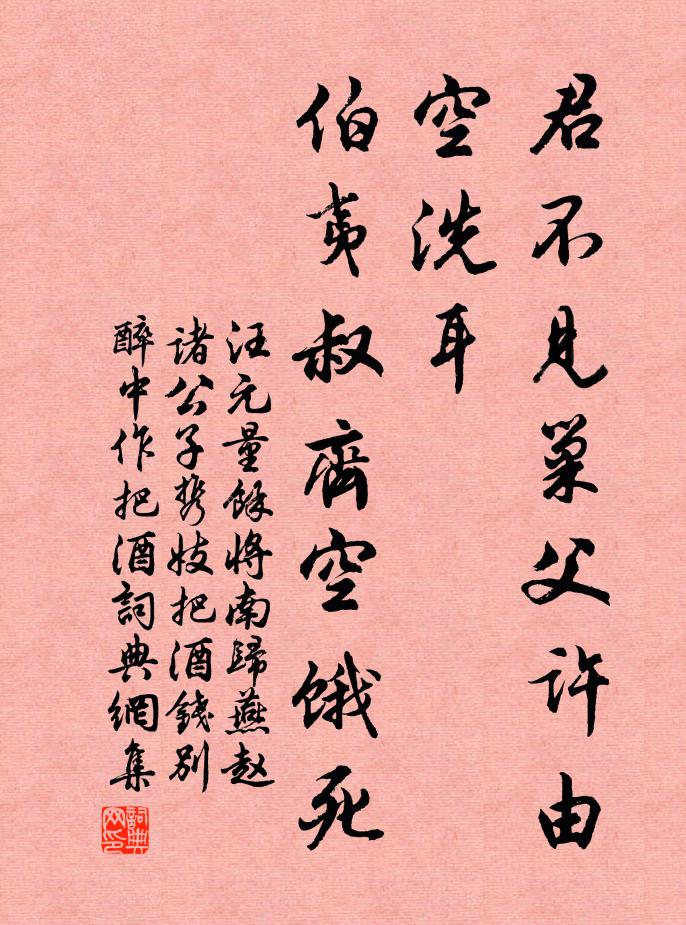 君不見巢父許由
空洗耳
伯夷叔齊空餓死
汪元量餘將南歸燕趙
諸公子攜妓把酒餞別
醉中作把酒詞典網集
詞典
网印